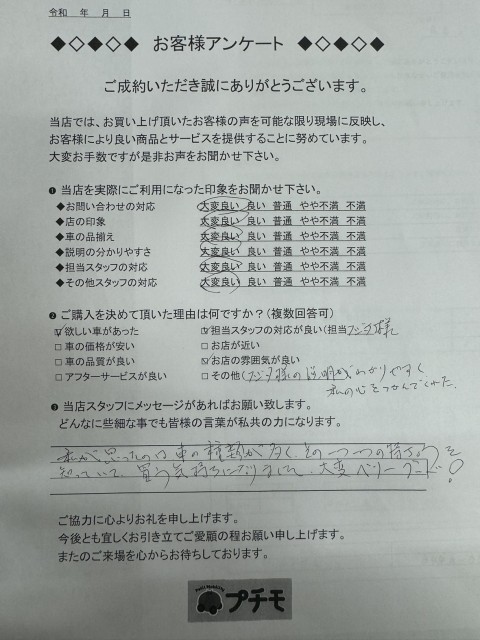 令和　年　月　日
◆◇◆◇◆　お客様アンケート　◆◇◆◇◆
ご成約いただき誠にありがとうございます。
当店では、お買い上げ頂いたお客様の声を可能な限り現場に反映し、
お客様により良い商品とサービスを提供することに努めています。
大変お手数ですが是非お声をお聞かせ下さい。
❶ 当店を実際にご利用になった印象をお聞かせ下さい。
◆お問い合わせの対応　大変良い 良い 普通 やや不満 不満
◆店の印象　大変良い 良い 普通 やや不満 不満
◆車の品揃え　大変良い 良い 普通 やや不満 不満
◆説明の分かりやすさ　大変良い 良い 普通 やや不満 不満
◆担当スタッフの対応　大変良い 良い 普通 やや不満 不満
◆その他スタッフの対応　大変良い 良い 普通 やや不満 不満
❷ ご購入を決めて頂いた理由は何ですか？（複数回答可）
☑欲しい車があった　☑担当スタッフの対応が良い（担当フジタ様）
□車の価格が安い　□お店が近い
□車の品質が良い　☑お店の雰囲気が良い
□アフターサービスが良い　□その他（フジタ様の説明がわかりやすく
私の心をつかんでくれた.
❸ 当店スタッフにメッセージがあればお願い致します。
どんなに些細な事でも皆様の言葉が私共の力になります。
私が思ったのは車の種類が多く、その一つ一つの特ちょうを
知っていて、買う気持ちになりまして、大変ベリーグード!
ご協力に心よりお礼を申し上げます。
今後とも宜しくお引き立てご愛顧の程お願い申し上げます。
またのご来場を心からお待ちしております。
プチモ